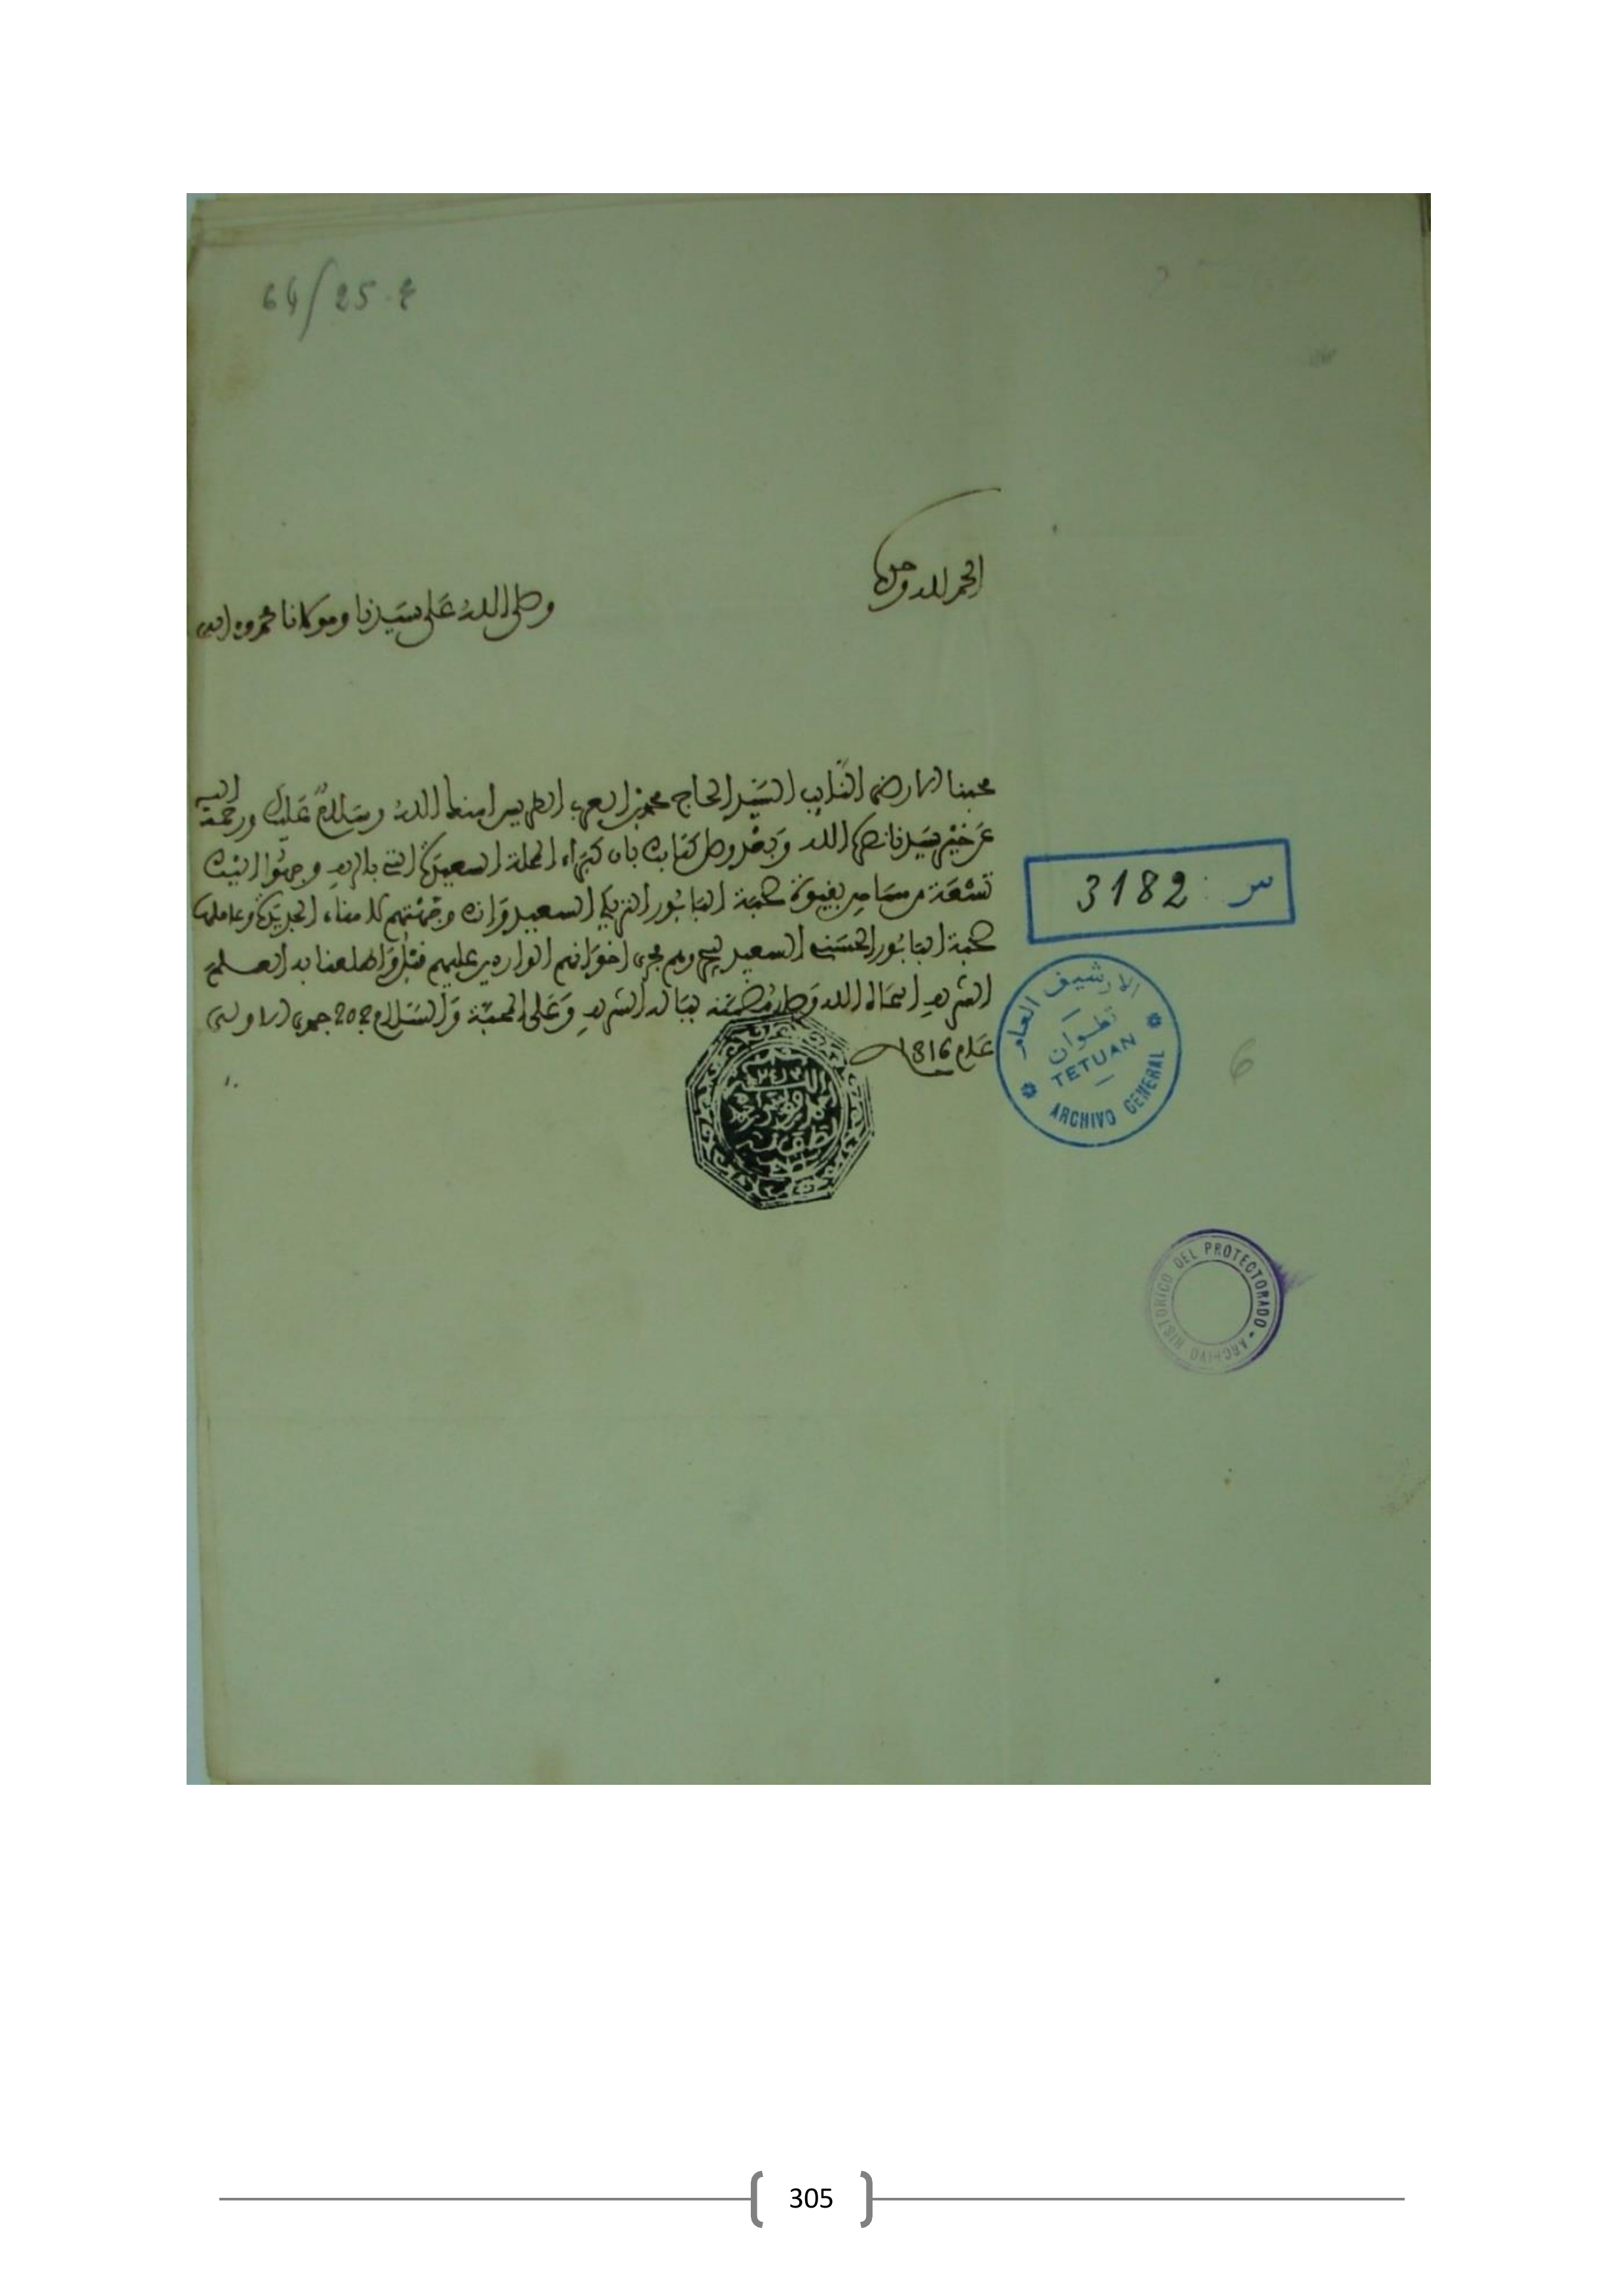 64/25-ع
الحمد لله وحده
وصلى الله على سيدنا ومولانا محمد وءاله
محبنا الارضى النائب السيد الحاج محمد بن العربي الطريس امنك الله وسلام عليك ورحمة الله
عن خير سيدنا نصره الله وبعد وصل كتابك بان كبراء المحلة السعيدة التي بالريف وجهوا اليك
تسعة من مساجين بقيوة صحبة البابور التركي السعيد وانك وجهتهم لامناء الجديدة وعاملها
صحبة البابور الحسني السعيد ليجروهم مجرى اخوانهم الواردين عليهم قبل واطلعنا به العلم
الشريف اسماه الله وصار مضمنه ببال الشريف وعلى المحبة والسلام في 20 جمدى الاولى
عام 1316
س : 3182
الارشيف العام
تطوان
TETUAN
ARCHIVO GENERAL
6
ARCHIVO HISTORICO DEL PROTECTORADO
305